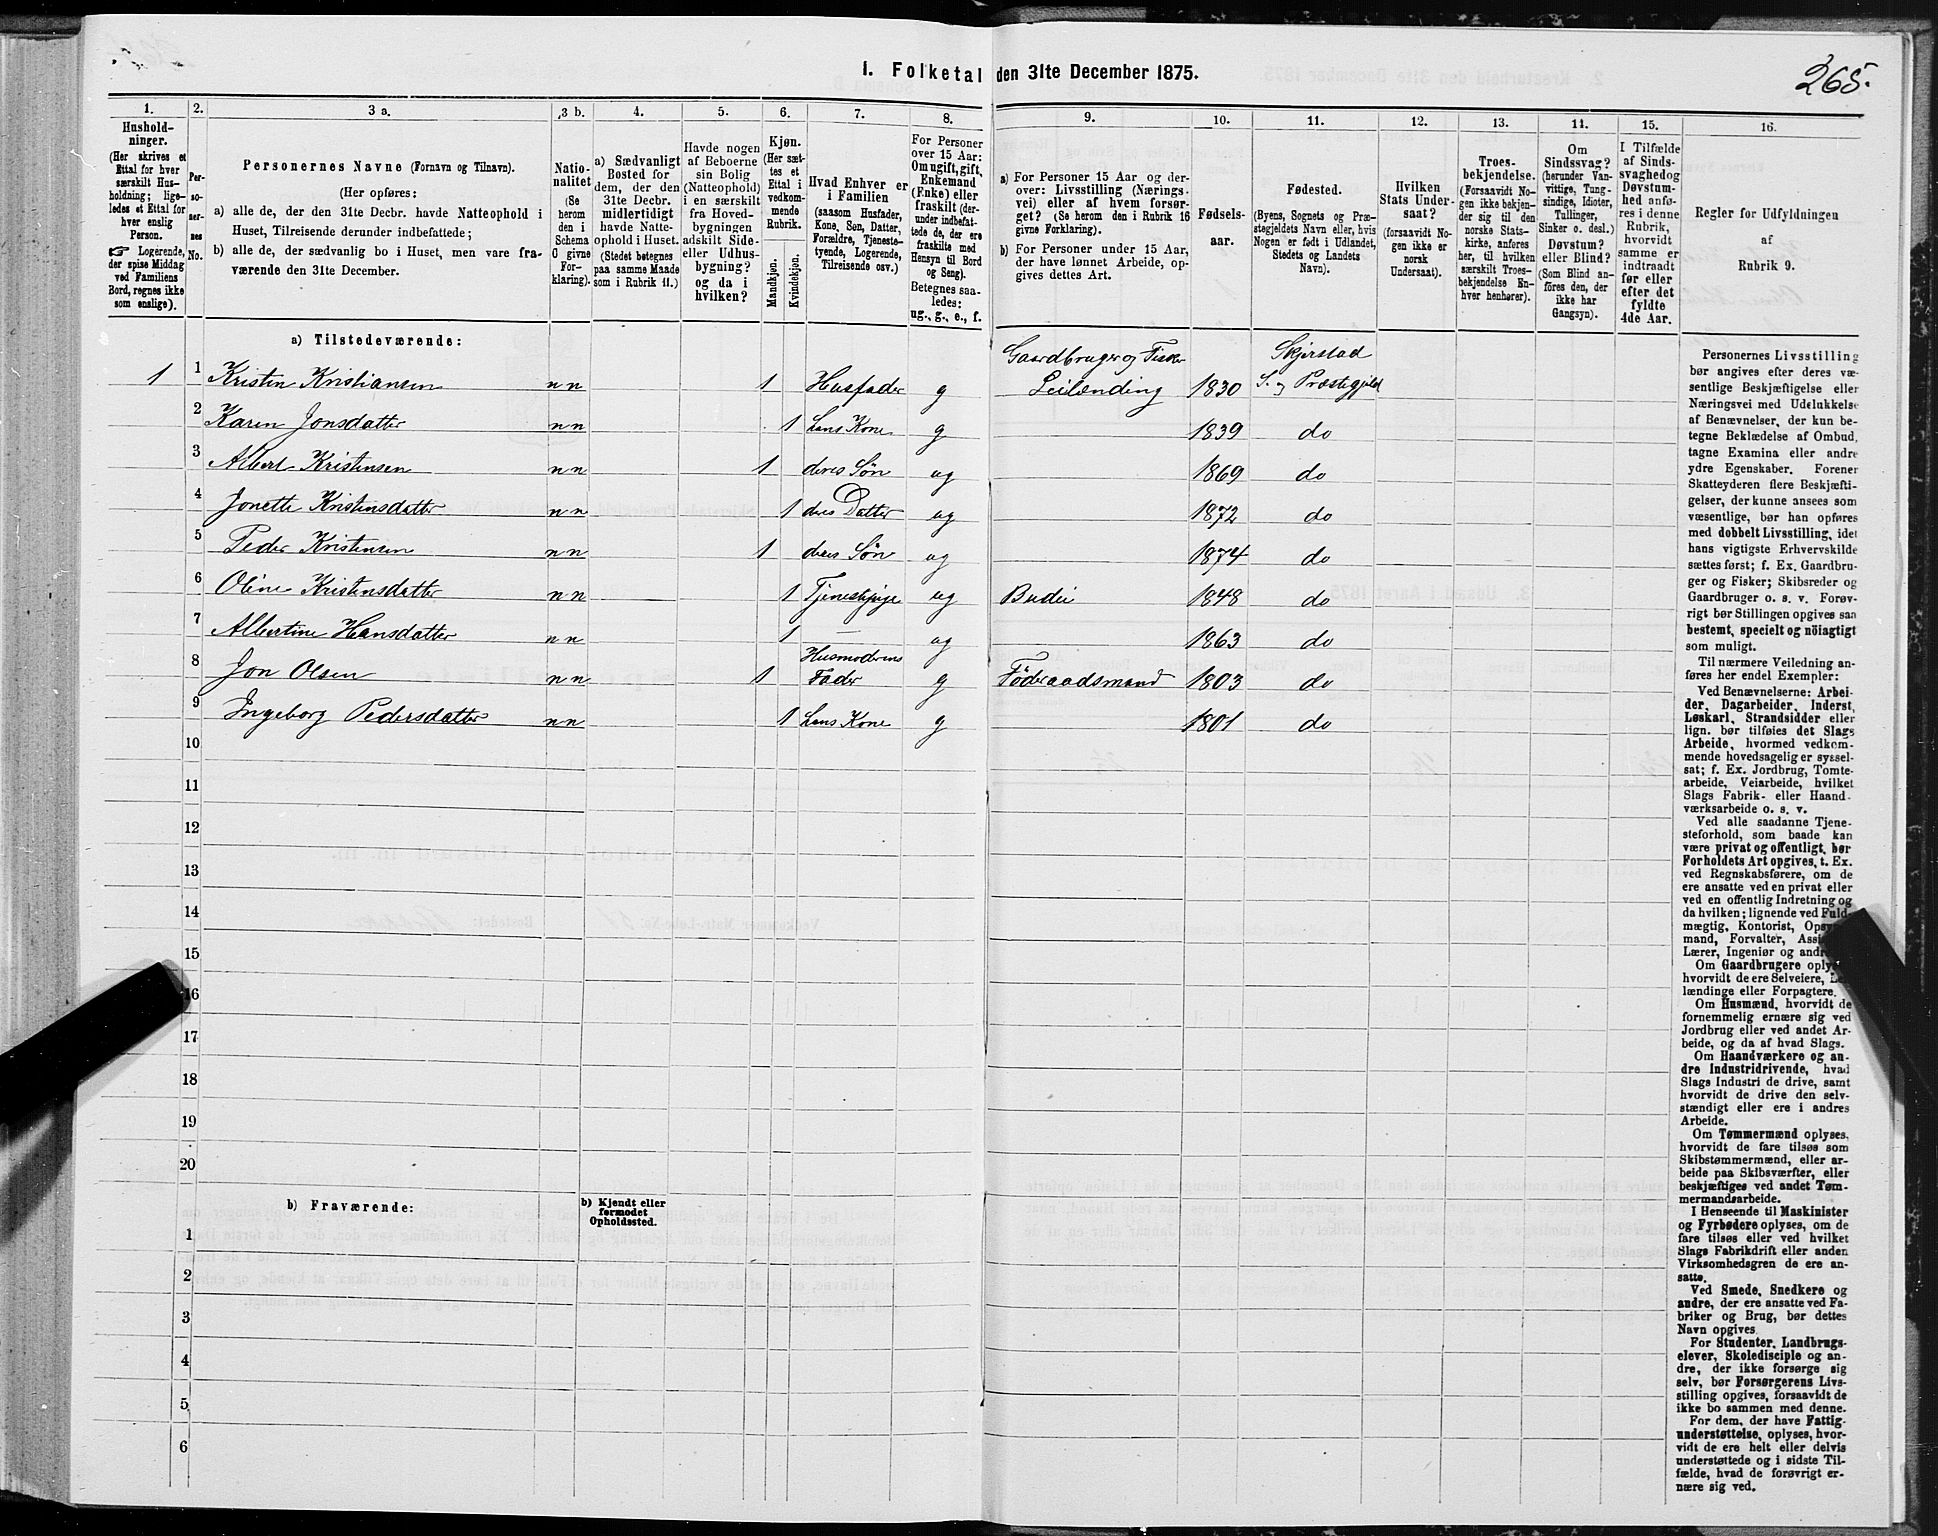 1. Folketal den 31te December 1875.
265.
1.
Hushold-
ninger.
(Her skrives et
Ettal for hver
særskilt Hus-
holdning; lige-
ledes et Ettal for
hver enslig
Person.
☞ Logerende,
der spise Middag
ved Familiens
Bord, regnes ikke
som enslige).
2.
Per-
so-
ner-
nes
No.
3 a.
Personernes Navne (Fornavn og Tilnavn).
(Her opføres:
a) alle de, der den 31te Decbr. havde Natteophold i
Huset, Tilreisende derunder indbefattede;
b) alle de, der sædvanlig bo i Huset, men vare fra-
værende den 31te December.
3 b.
Natio-
nalitet
(Se
herom
den i
Schema
C givne
For-
klaring).
4.
a) Sædvanligt
Bosted for
dem, der den
31te Decbr.
midlertidigt
havde Natte-
ophold i Huset.
(Stedet betegnes
paa samme Maade
som i Rubrik 11.)
5.
Havde nogen
af Beboerne
sin Bolig
(Natteophold)
i en særskilt
fra Hoved-
bygningen
adskilt Side-
eller Udhus-
bygning?
og da i
hvilken?
6.
Kjøn.
(Her sæt-
tes et
Ettal i
vedkom-
mende
Rubrik.
Mandkjøn.
Kvindekjøn.
7.
Hvad Enhver er
i Familien
(saasom Husfader,
Kone, Søn, Datter,
Forældre, Tjeneste-
tyende, Logerende,
Tilreisende osv.)
8.
For Personer
over 15 Aar:
Om ugift, gift,
Enkemand
(Enke) eller
fraskilt (der-
under indbefat-
tede de, der ere
fraskilte med
Hensyn til Bord
og Seng).
Betegnes saa-
ledes:
ug., g., e., f.
9.
a) For Personer 15 Aar og der-
over: Livsstilling (Nærings-
vei) eller af hvem forsør-
get? (Se herom den i Rubrik 16
givne Forklaring).
b) For Personer under 15 Aar,
der have lønnet Arbeide, op-
gives dettes Art.
10.
Fødsels-
aar.
11.
Fødested.
(Byens, Sognets og Præ-
stegjeldets Navn eller, hvis
Nogen er født i Udlandet,
Stedets og Landets
Navn).
12.
Hvilken
Stats Under-
saat?
(forsaavidt No-
gen ikke er
norsk
Undersaat).
13.
Troes-
bekjendelse.
(Forsaavidt No-
gen ikke bekjen-
der sig til den
norske Stats-
kirke, anføres
her, til hvilken
særskilt Troes-
bekjendelse En-
hver henhører).
14.
Om
Sindssvag?
(herunder Van-
vittige, Tung-
sindige, Idioter,
Tullinger,
Sinker o. desl.)
Døvstum?
eller Blind?
(Som Blind an-
føres den, der
ikke har
Gangsyn).
15.
I Tilfælde
af Sinds-
svaghed og
Døvstum-
hed anfø-
res i denne
Rubrik,
hvorvidt
samme er
indtraadt
før eller
efter det
fyldte
4de Aar.
16.
Regler for Udfyldningen
af
Rubrik 9.
a) Tilstedeværende:
Gaardbruger og Fisker Skjerstad
1 1 Kristen Kristiansen n n 1 Husfader g Leilænding 1830 S. og Præstegjeld
2 Karen Jonsdatter n n 1 hans Kone g 1839 do
3 Albert Kristensen n n 1 deres Søn ug 1869 do
4 Jonette Kristensdatter n n 1 deres Datter ug 1872 do
5 Peder Kristensen n n 1 deres Søn ug 1874 do
6 Oline Kristensdatter n n 1 Tjenestepige ug Budei 1848 do
7 Albertine Hansdatter n n 1 — ug 1863 do
Husmoderens
8 Jon Olsen n n 1 Fader g Föderaadsmand 1803 do
9 Ingeborg Pedersdatter n n 1 hans Kone g 1801 do
10
11
12
13
14
15
16
17
18
19
20
b) Fraværende:
b) Kjendt eller
formodet
Opholdssted.
1
2
3
4
5
6
Personernes Livsstilling
bør angives efter deres væ-
sentlige Beskjæftigelse eller
Næringsvei med Udelukkelse
af Benævnelser, der kun be-
tegne Beklædelse af Ombud,
tagne Examina eller andre
ydre Egenskaber. Forener
Skatteyderen flere Beskjæfti-
gelser, der kunne ansees som
væsentlige, bør han opføres
med dobbelt Livsstilling, idet
hans vigtigste Erhvervskilde
sættes først; f. Ex. Gaardbru-
ger og Fisker; Skibsreder og
Gaardbruger o. s. v. Forøv-
rigt bør Stillingen opgives saa
bestemt, specielt og nöiagtigt
som muligt.
Til nærmere Veiledning an-
føres her endel Exempler:
Ved Benævnelserne: Arbei-
der, Dagarbeider, Inderst,
Løskarl, Strandsidder eller
lign. bør tilføies det Slags
Arbeide, hvormed vedkom-
mende hovedsagelig er syssel-
sat; f. Ex. Jordbrug, Tomte-
arbeide, Veiarbeide, hvilket
Slags Fabrik- eller Haand-
værksarbeide o. s. v.
Ved alle saadanne Tjene-
steforhold, som baade kan
være privat og offentligt, bør
Forholdets Art opgives, t. Ex.
ved Regnskabsførere, om de
ere ansatte ved en privat eller
ved en offentlig Indretning og
da hvilken; lignende ved Fuld-
mægtig, Kontorist, Opsyns-
mand, Forvalter, Assi
Lærer, Ingeniør og andre
Om Gaardbrugere oply
hvorvidt de ere Selveiere, Lei-
lændinge eller Forpagtere.
Om Husmænd, hvorvidt de
fornemmelig ernære sig ved
Jordbrug eller ved andet Ar-
beide, og da af hvad Slags.
Om Haandværkere og an-
dre Industridrivende, hvad
Slags Industri de drive, samt
hvorvidt de drive den selv-
stændigt eller ere i andres
Arbeide.
Om Tømmermænd oplyses,
hvorvidt de fare tilsøs som
Skibstømmermænd, eller ar-
beide paa Skibsværfter, eller
beskjæftiges ved andet Tøm-
mermandsarbeide.
I Henseende til Maskinister
og Fyrbødere oplyses, om de
fare tilsøs eller ved hvilket
Slags Fabrikdrift eller anden
Virksomhedsgren de ere an-
satte.
Ved Smede, Snedkere og
andre, der ere ansatte ved Fa-
briker og Brug, bør dettes
Navn opgives
For Studenter, Landbrugs-
elever, Skoledisciple og an-
dre, der ikke forsørge sig
selv, bør Forsørgerens Livs-
stilling opgives, forsaavidt de
ikke bo sammen med denne.
For dem, der have Fattig-
understøttelse, oplyses, hvor-
vidt de ere helt eller delvis
understøttede og i sidste Til-
fælde, hvad de forøvrigt er-
nære sig ved.